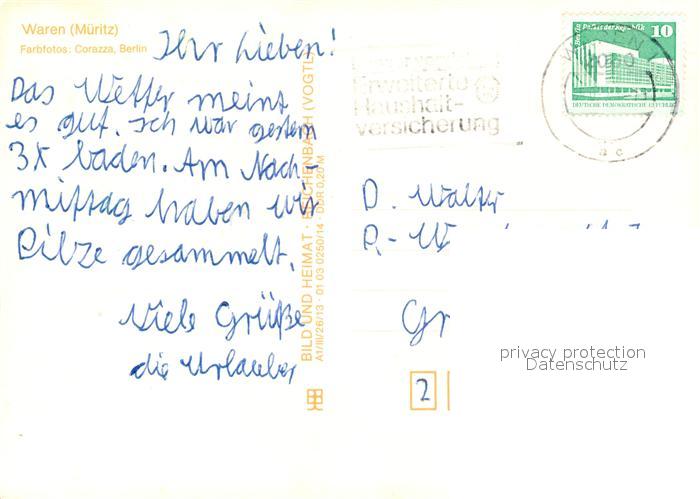 Waren (Müritz)
Farbfotos: Corazza, Berlin
Ihr Lieben!
Das Wetter meint
es gut. Ich war gestern
3x baden. Am Nach-
mittag haben wir
Pilze gesammelt.
Viele Grüße
die Urlauber
BILD UND HEIMAT · REICHENBACH (VOGTL
A1/III/26/13 · 01 03 0250/14 · DDR 0,20 M
Erweiterte
Haushalt-
versicherung
Palast der Republik 10
DEUTSCHE DEMOKRATISCHE REPUBLIK
D. Walter
Gr
2
privacy protection
Datenschutz